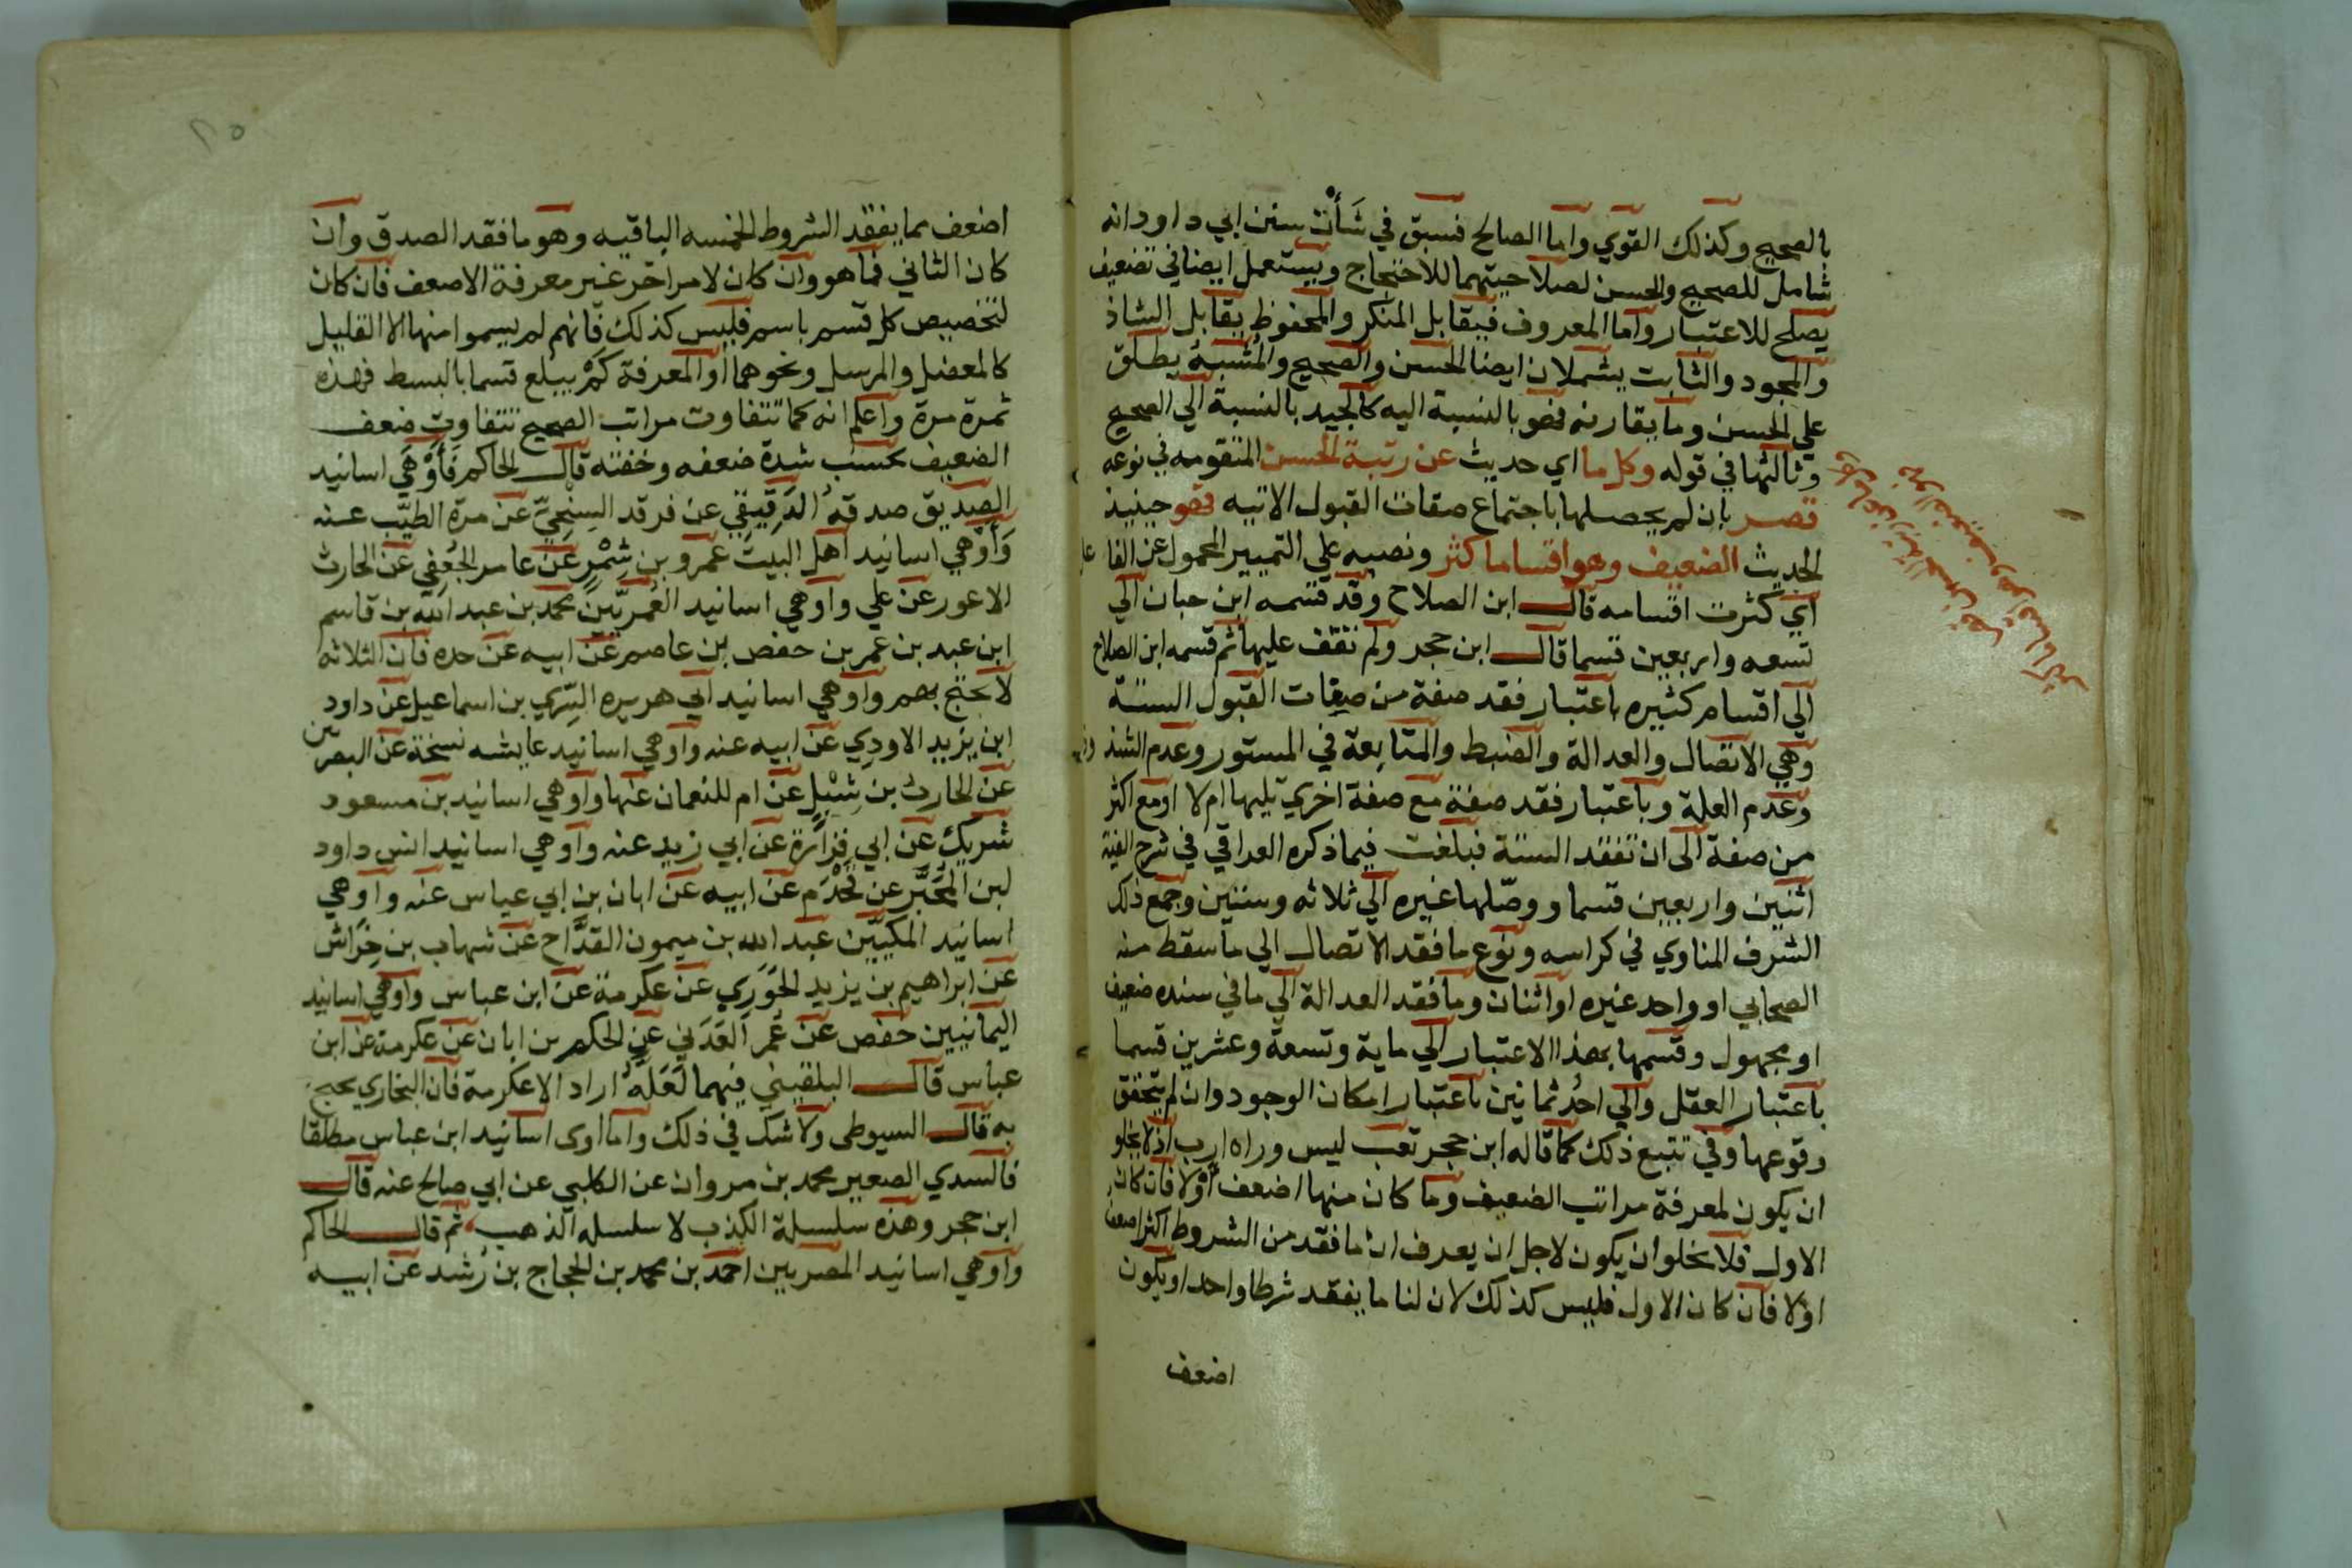 بالصحيح وكذلك القوي واما الصالح فسبق في شَأْن سنن ابي داود انه
شامل للصحيح والحسن لصلاحيتهما للاحتجاج ويستعمل ايضا في تضعيف
يصلح للاعتبار واما المعروف فيقابل المنكر والمحفوظ يقابل الشاذ
والمجود والثابت يشملان ايضا الحسن والصحيح والمُشبهُ يطلق
علي الحسن وما يقاربه فهو بالنسبة اليه كالجيد بالنسبة الي الصحيح
وثالثها في قوله وكل ما اي حديث عن رتبة الحسن المتقومه في نوعه
قصر بان لم يحصلها باجتماع صفات القبول الاتيه فهو حينيذ
الحديث الضعيف وهو اقساما كثر ونصبه علي التمييز المحمول عن الفاعل
اي كثرت اقسامه قال ابن الصلاح وقد قسمه ابن حبان الي
تسعه واربعين قسما قال ابن حجر ولم نقف عليها ثم قسمه ابن الصلاح
الي اقسام كثيره باعتبار فقد صفة من صفات القبول الستة
وهي الاتصال والعدالة والضبط والمتابعة في المستور وعدم الشذوذ
وعدم العلة وباعتبار فقد صفة مع صفة اخري تليها ام لا او مع اكثر
من صفة الى ان تفقد الستة فبلغت فيما ذكره العراقي في شرح الفيته
اثنين واربعين قسما ووصّلها غيره الي ثلاثه وستين وجمع ذلك
الشرف المناوي في كراسه ونوع ما فقد الاتصال الي ما سقط منه
الصحابي او واحد غيره او اثنان وما فقد العدالة الي ما في سنده ضعيف
او مجهول وقسمها بهذا الاعتبار الي ماية وتسعة وعشرين قسما
باعتبار العقل والي احُد ثمانين باعتبار امكان الوجود وان لم يتحقق
وقوعها وفي تتبع ذلك كما قاله ابن حجر تعب ليس وراه ارب اذ لا يخلو
ان يكون لمعرفة مراتب الضعيف وما كان منها اضعف أوْ لا فان كان
الاول فلا يخلو ان يكون لاجل ان يعرف ان ما فقد من الشروط اكثر اضعف
اوْ لا فان كان الاول فليس كذلك لان لنا ما يفقد شرطا واحدا ويكون
اضعف
اضعف مما يفقد الشروط الخمسه الباقيه وهو ما فقد الصدق وان
كان الثاني فما هو وان كان لامر اخر غير معرفة الاضعف فان كان
لتخصيص كل قسم باسم فليس كذلك فانهم لم يسموا منها الا القليل
كالمعضل والمرسل ونحوهما او المعرفة كمْ يبلغ قسما بالبسط فهذه
ثمرة مرة واعلم انه كما تتفاوت مراتب الصحيح تتفاوت ضعف
الضعيف بحسب شدة ضعفه وخفته قال الحاكم فَأَوْهَي اسانيد
الصديق صدقه الدَقيقي عن فرقد السِنْجِيّ عن مرة الطيّب عنه
وَأَوْهي اسانيد اهل البيت عمرو بن شِمْرٍ عن عامر الجُعفِي عن الحارث
الاعور عن علي واوهي اسانيد العُمريّينَ محمد بن عبد الله بن قاسم
ابن عبد بن عمر بن حفص بن عاصم عن ابيه عن جده فان الثلاثه
لا يحتج بهم واوهي اسانيد ابي هريره السّري بن اسماعيل عن داود
ابن يزيد الاودي عن ابيه عنه واوهي اسانيد عايشه نسخة عن البصريين
عن الحارث بن شبْلٍ عن ام للنعمان عنها واوهي اسانيد بن مسعود
شريك عن ابي فَزارة عن ابي زيد عنه واوهي اسانيد انس داود
لبن المُحَبَّر عن قَحْذَم عن ابيه عن ابان بن ابي عياس عنه واوهي
اسانيد المكيّين عبد الله بن ميمون القدَّاح عن شهاب بن خِرَاش
عن ابراهيم بن يزيد الخَوَزي عن عكرمة عن ابن عباس واوهي اسانيد
اليمانيين حفص عن عُمر العَدَني عن الحكم بن ابان عن عكرمة عن ابن
عباس قال البلقيني فيهما لَعَلهُ اراد الا عكرمة فان البخاري يحتج
به قال السيوطي ولا شك في ذلك واما اوى اسانيد ابن عباس مطلقا
فالسدي الصغير محمد بن مروان عن الكلبي عن ابي صالح عنه قال
ابن حجر وهذه سلسلة الكذب لا سلسله الذهب ثم قال الحاكم
واوهي اسانيد المصريين احمد بن محمد بن الحجاج بن رُشد عن ابيه